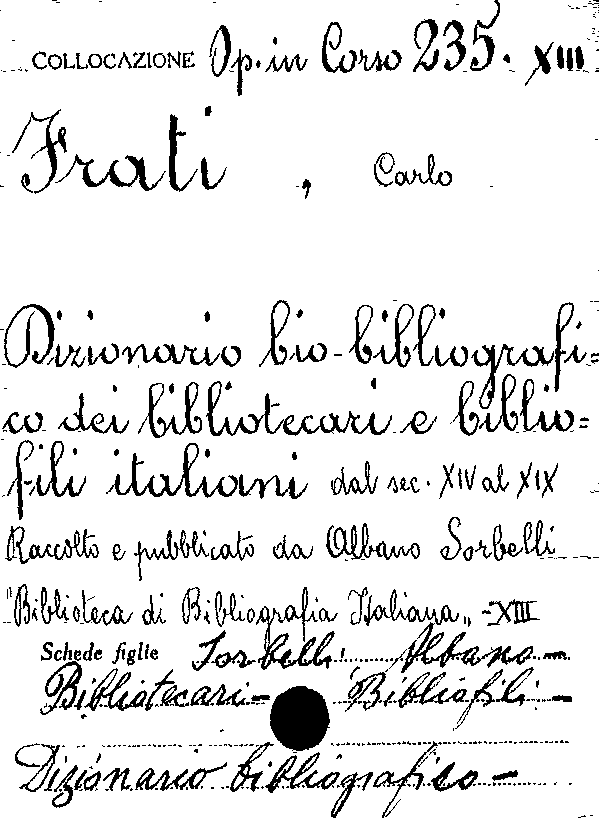 COLLOCAZIONE Op. in Corso 235. XIII
Frati, Carlo
Dizionario bio-bibliografi=
co dei bibliotecari e biblio=
fili italiani dal sec. XIV al XIX
Raccolto e pubblicato da Albano Sorbelli
"Biblioteca di Bibliografia Italiana„ - XIII
Schede figlie Sorbelli Albano -
Bibliotecari - Bibliofili -
Dizionario bibliografico -